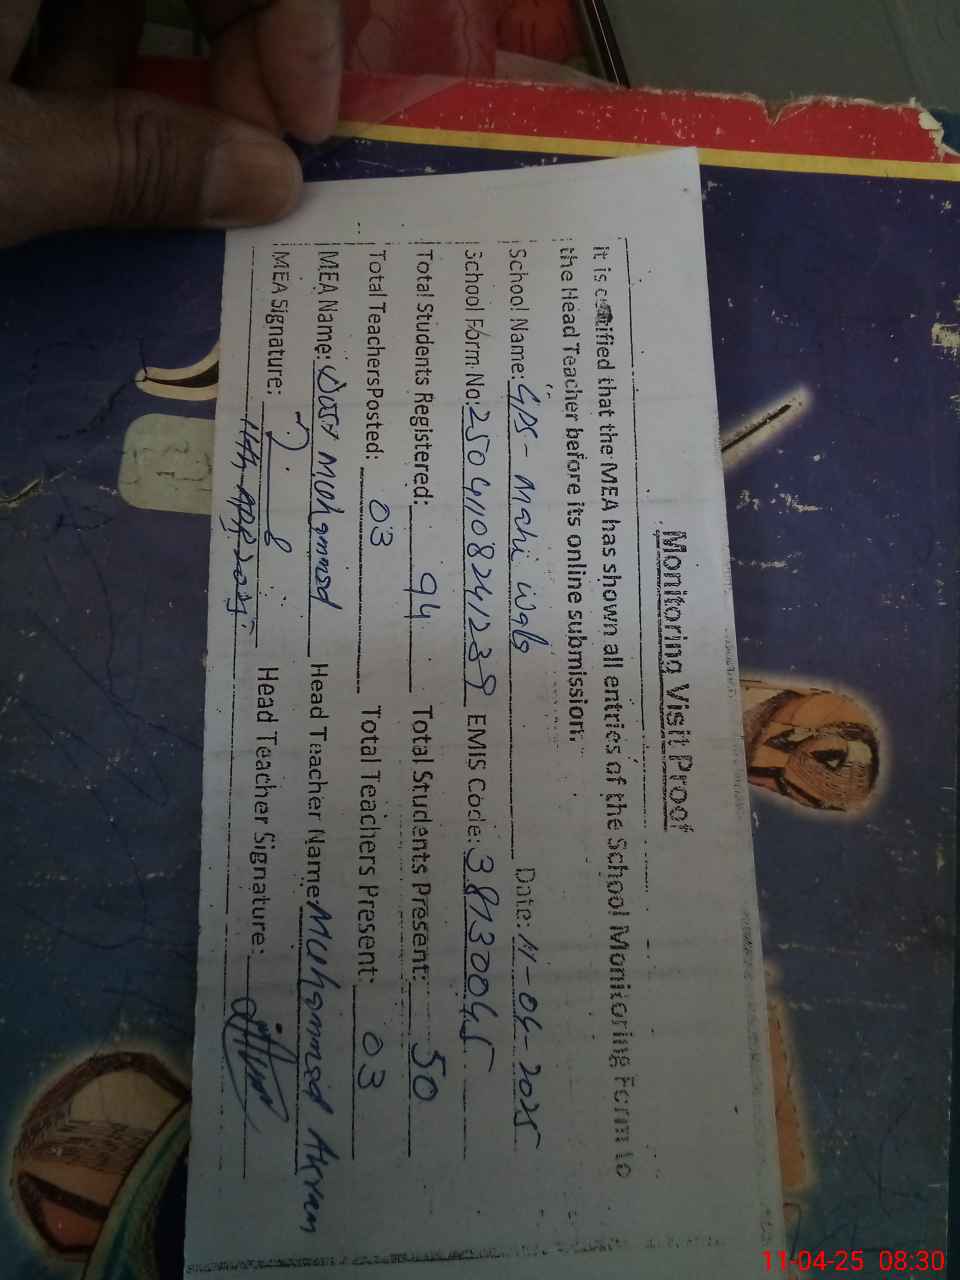 Monitoring Visit Proof
it is certified that the MEA has shown all entries of the School Monitoring Form to
the Head Teacher before its online submission.
School Name: GPS - Mahi Wala Date: 11-04-2025
School Form No: 25041108241239 EMIS Code: 38130045
Total Students Registered: 94 Total Students Present: 50
Total TeachersPosted: 03 Total Teachers Present: 03
MEA Name: Dost Muhammad Head Teacher Name Muhammad Akram
MEA Signature: Head Teacher Signature:
11th, Apr, 2025
11-04-25 08:30